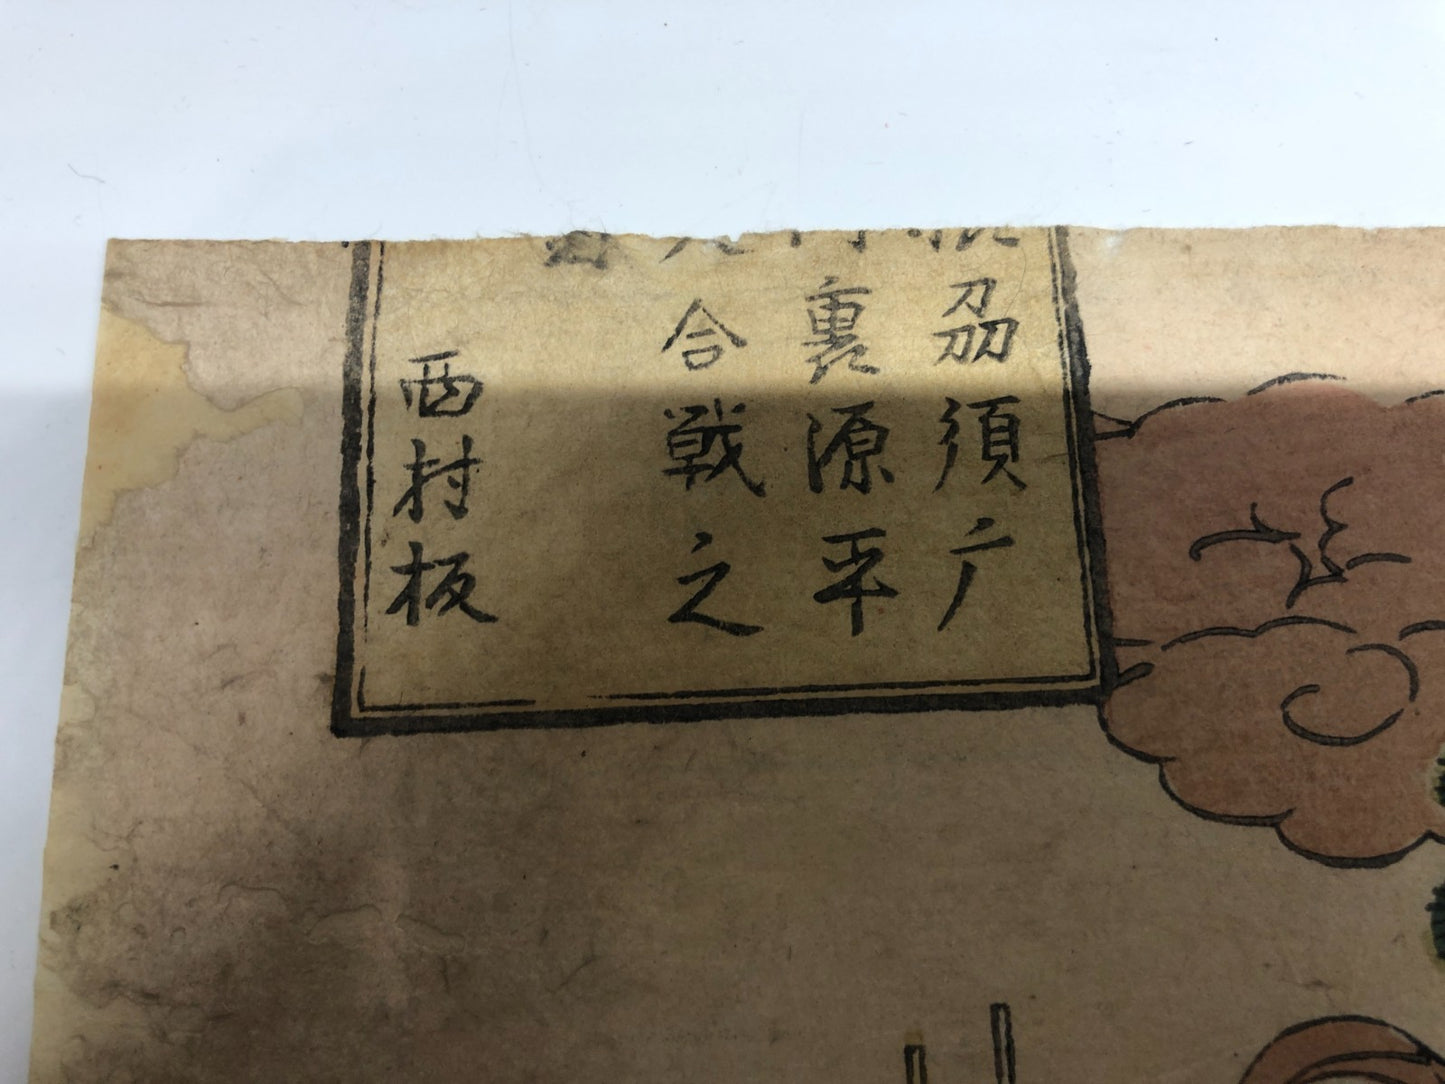 刕須广
裏源平
合戦之
西村板